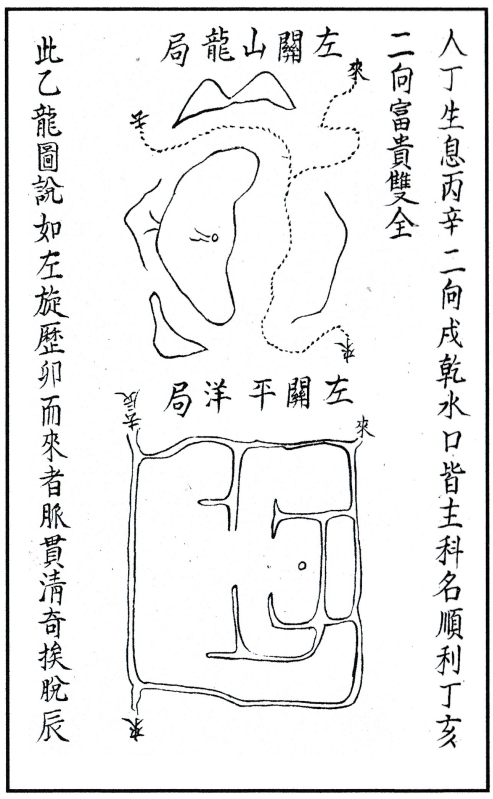 人丁生息丙辛二向戌乾水口皆主科名順利丁亥
二向富貴雙全
左關山龍局
來
去
來
左關平洋局
來
去辰
來
此乙龍圖說如左旋歷卯而來者脈貫清奇挨脫辰